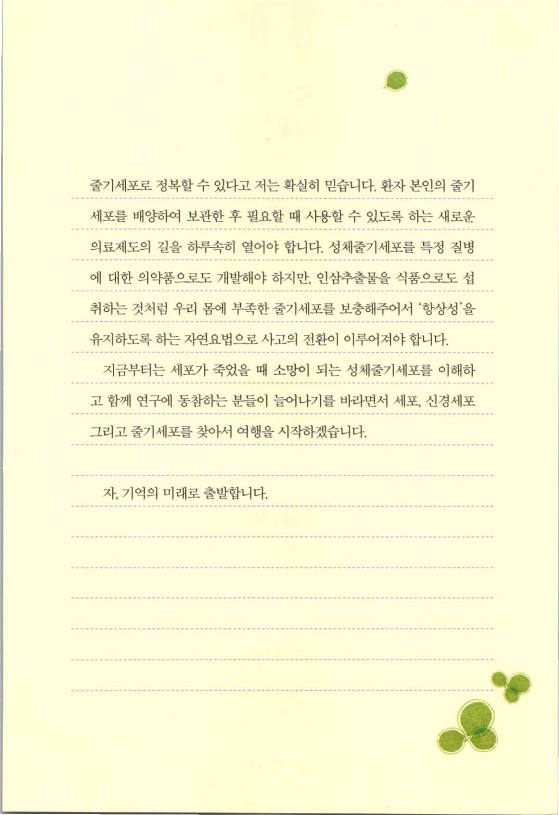 줄기세포로 정복할 수 있다고 저는 확실히 믿습니다. 환자 본인의 줄기
세포를 배양하여 보관한 후 필요할 때 사용할 수 있도록 하는 새로운
의료제도의 길을 하루속히 열어야 합니다. 성체줄기세포를 특정 질병
에 대한 의약품으로도 개발해야 하지만, 인삼추출물을 식품으로도 섭
취하는 것처럼 우리 몸에 부족한 줄기세포를 보충해주어서 ‘항상성’을
유지하도록 하는 자연요법으로 사고의 전환이 이루어져야 합니다.
지금부터는 세포가 죽었을 때 소망이 되는 성체줄기세포를 이해하
고 함께 연구에 동참하는 분들이 늘어나기를 바라면서 세포, 신경세포
그리고 줄기세포를 찾아서 여행을 시작하겠습니다.
자, 기억의 미래로 출발합니다.